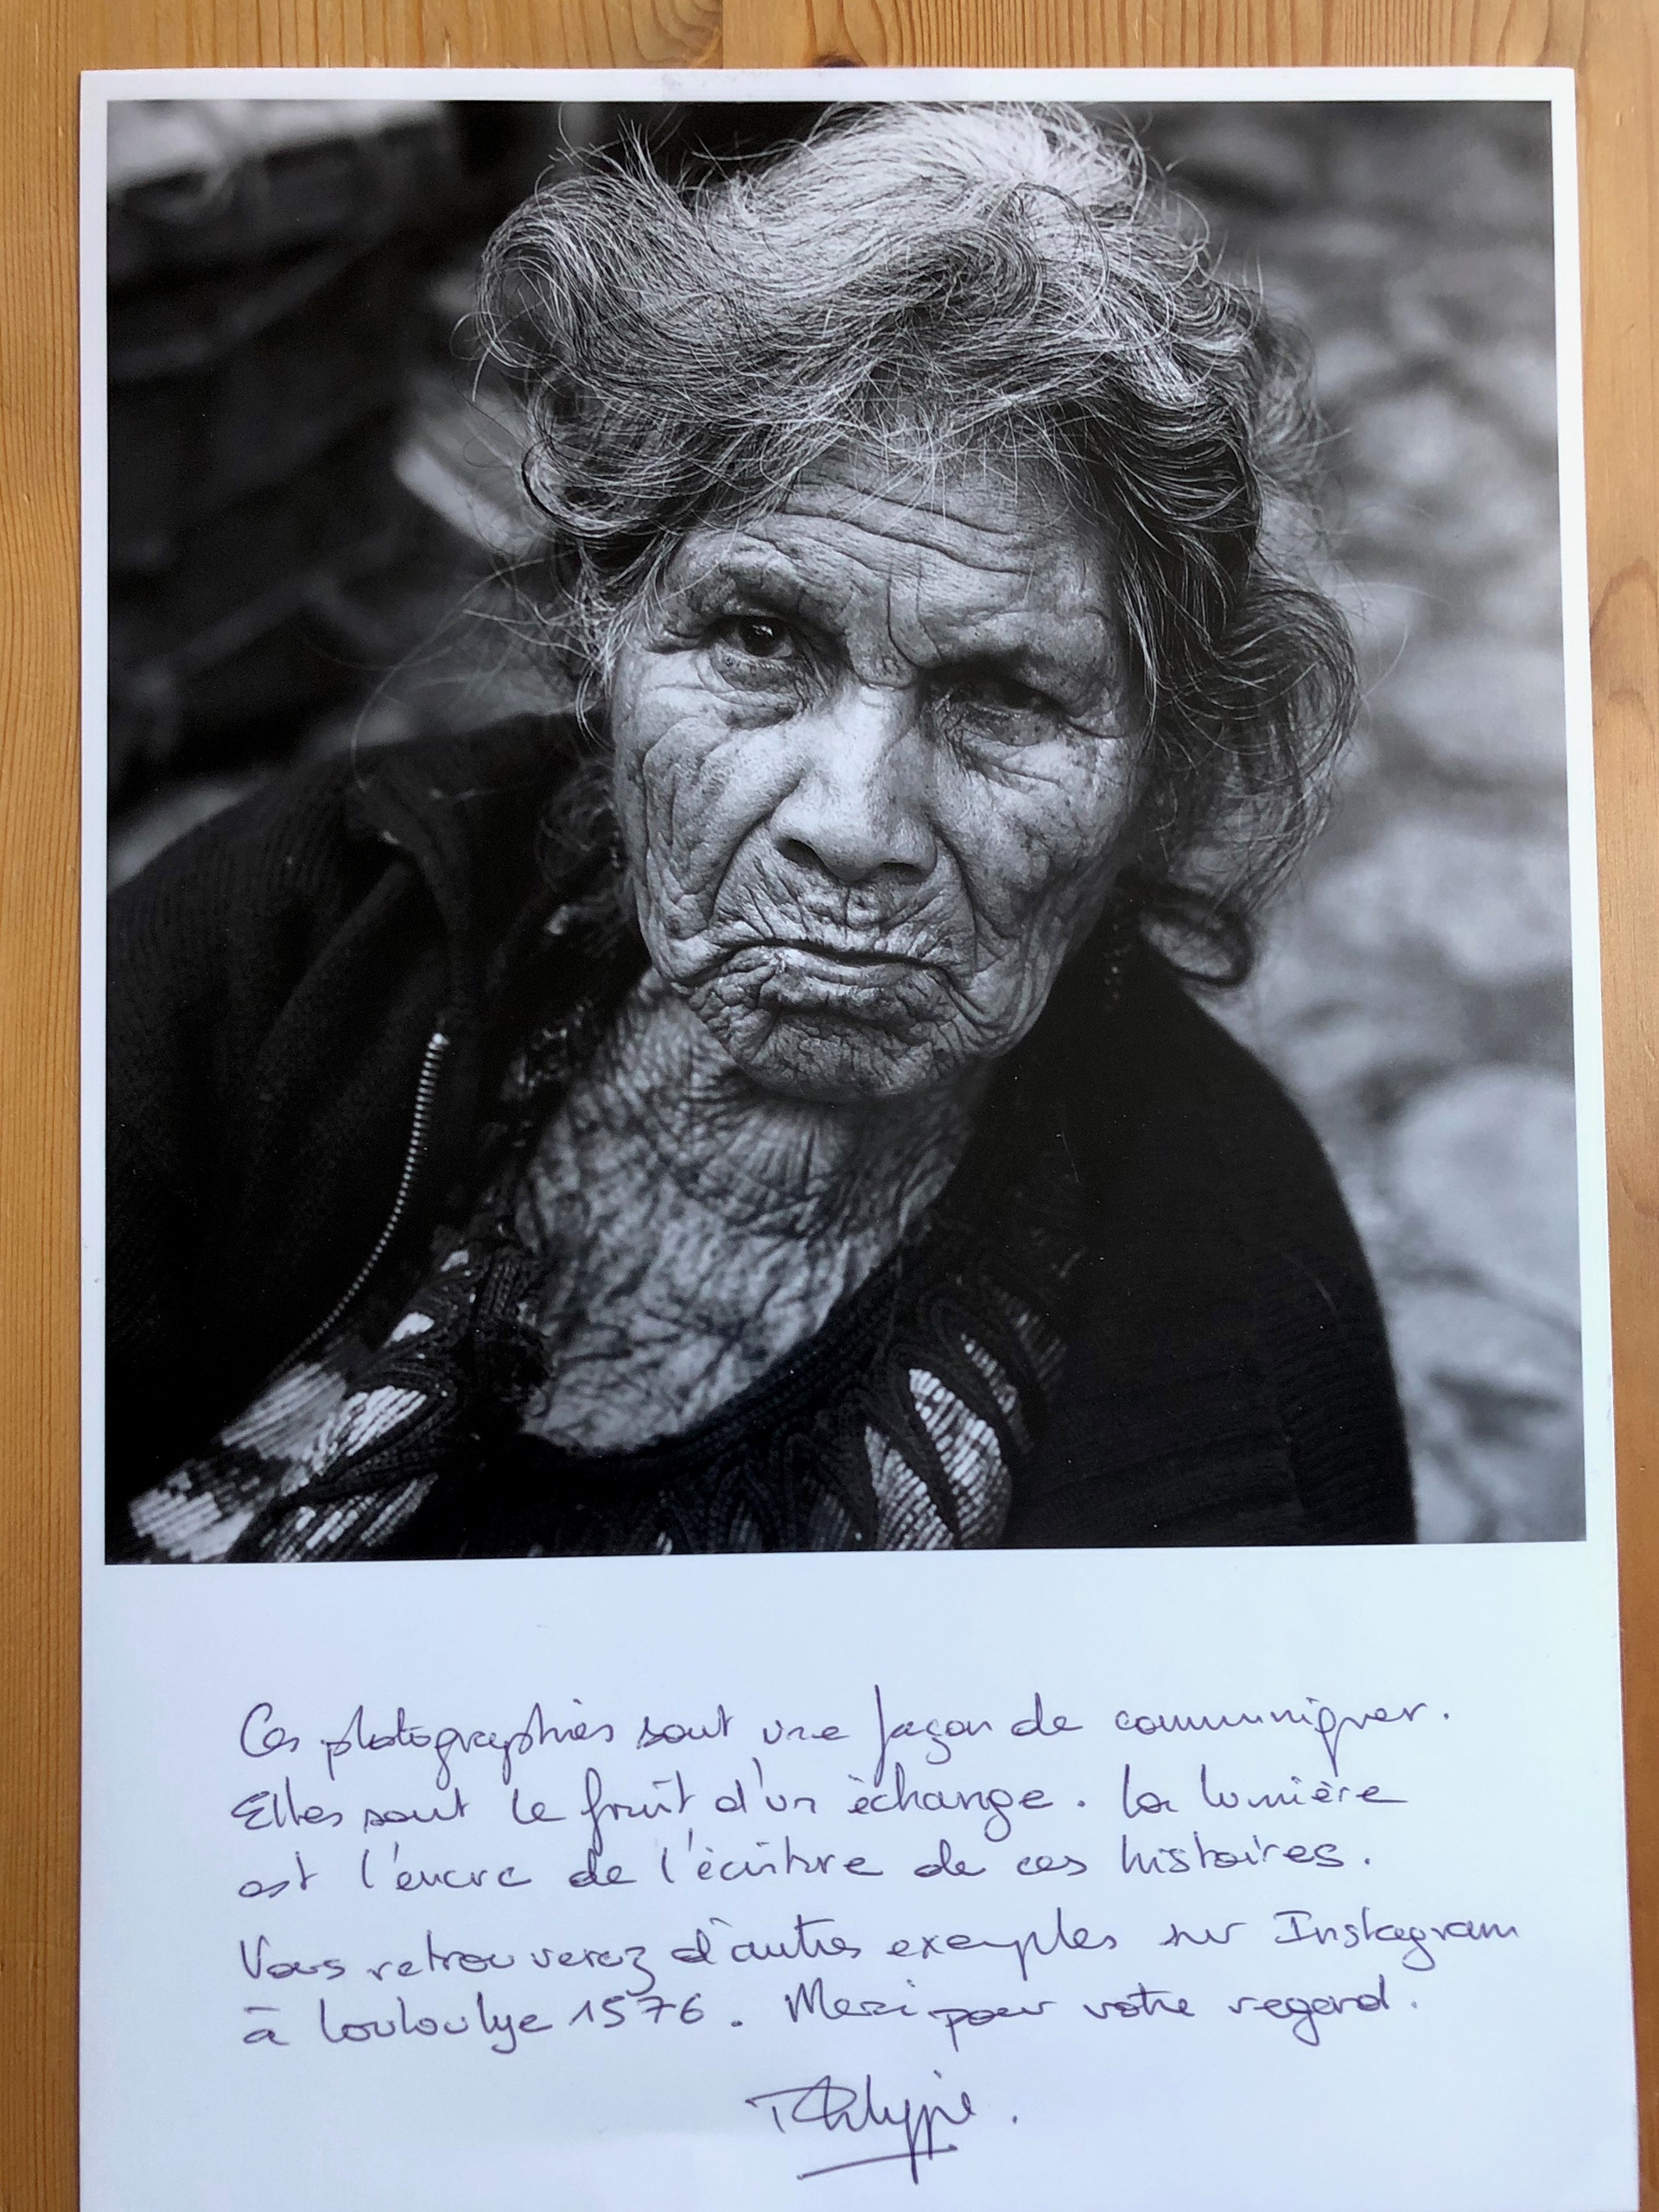 Ces photographies sont une façon de communiquer.
Elles sont le fruit d'un échange. La lumière
est l'encre de l'écriture de ces histoires.
Vous retrouverez d'autres exemples sur Instagram
à louloulye 1576. Merci pour votre regard.
Philippe.